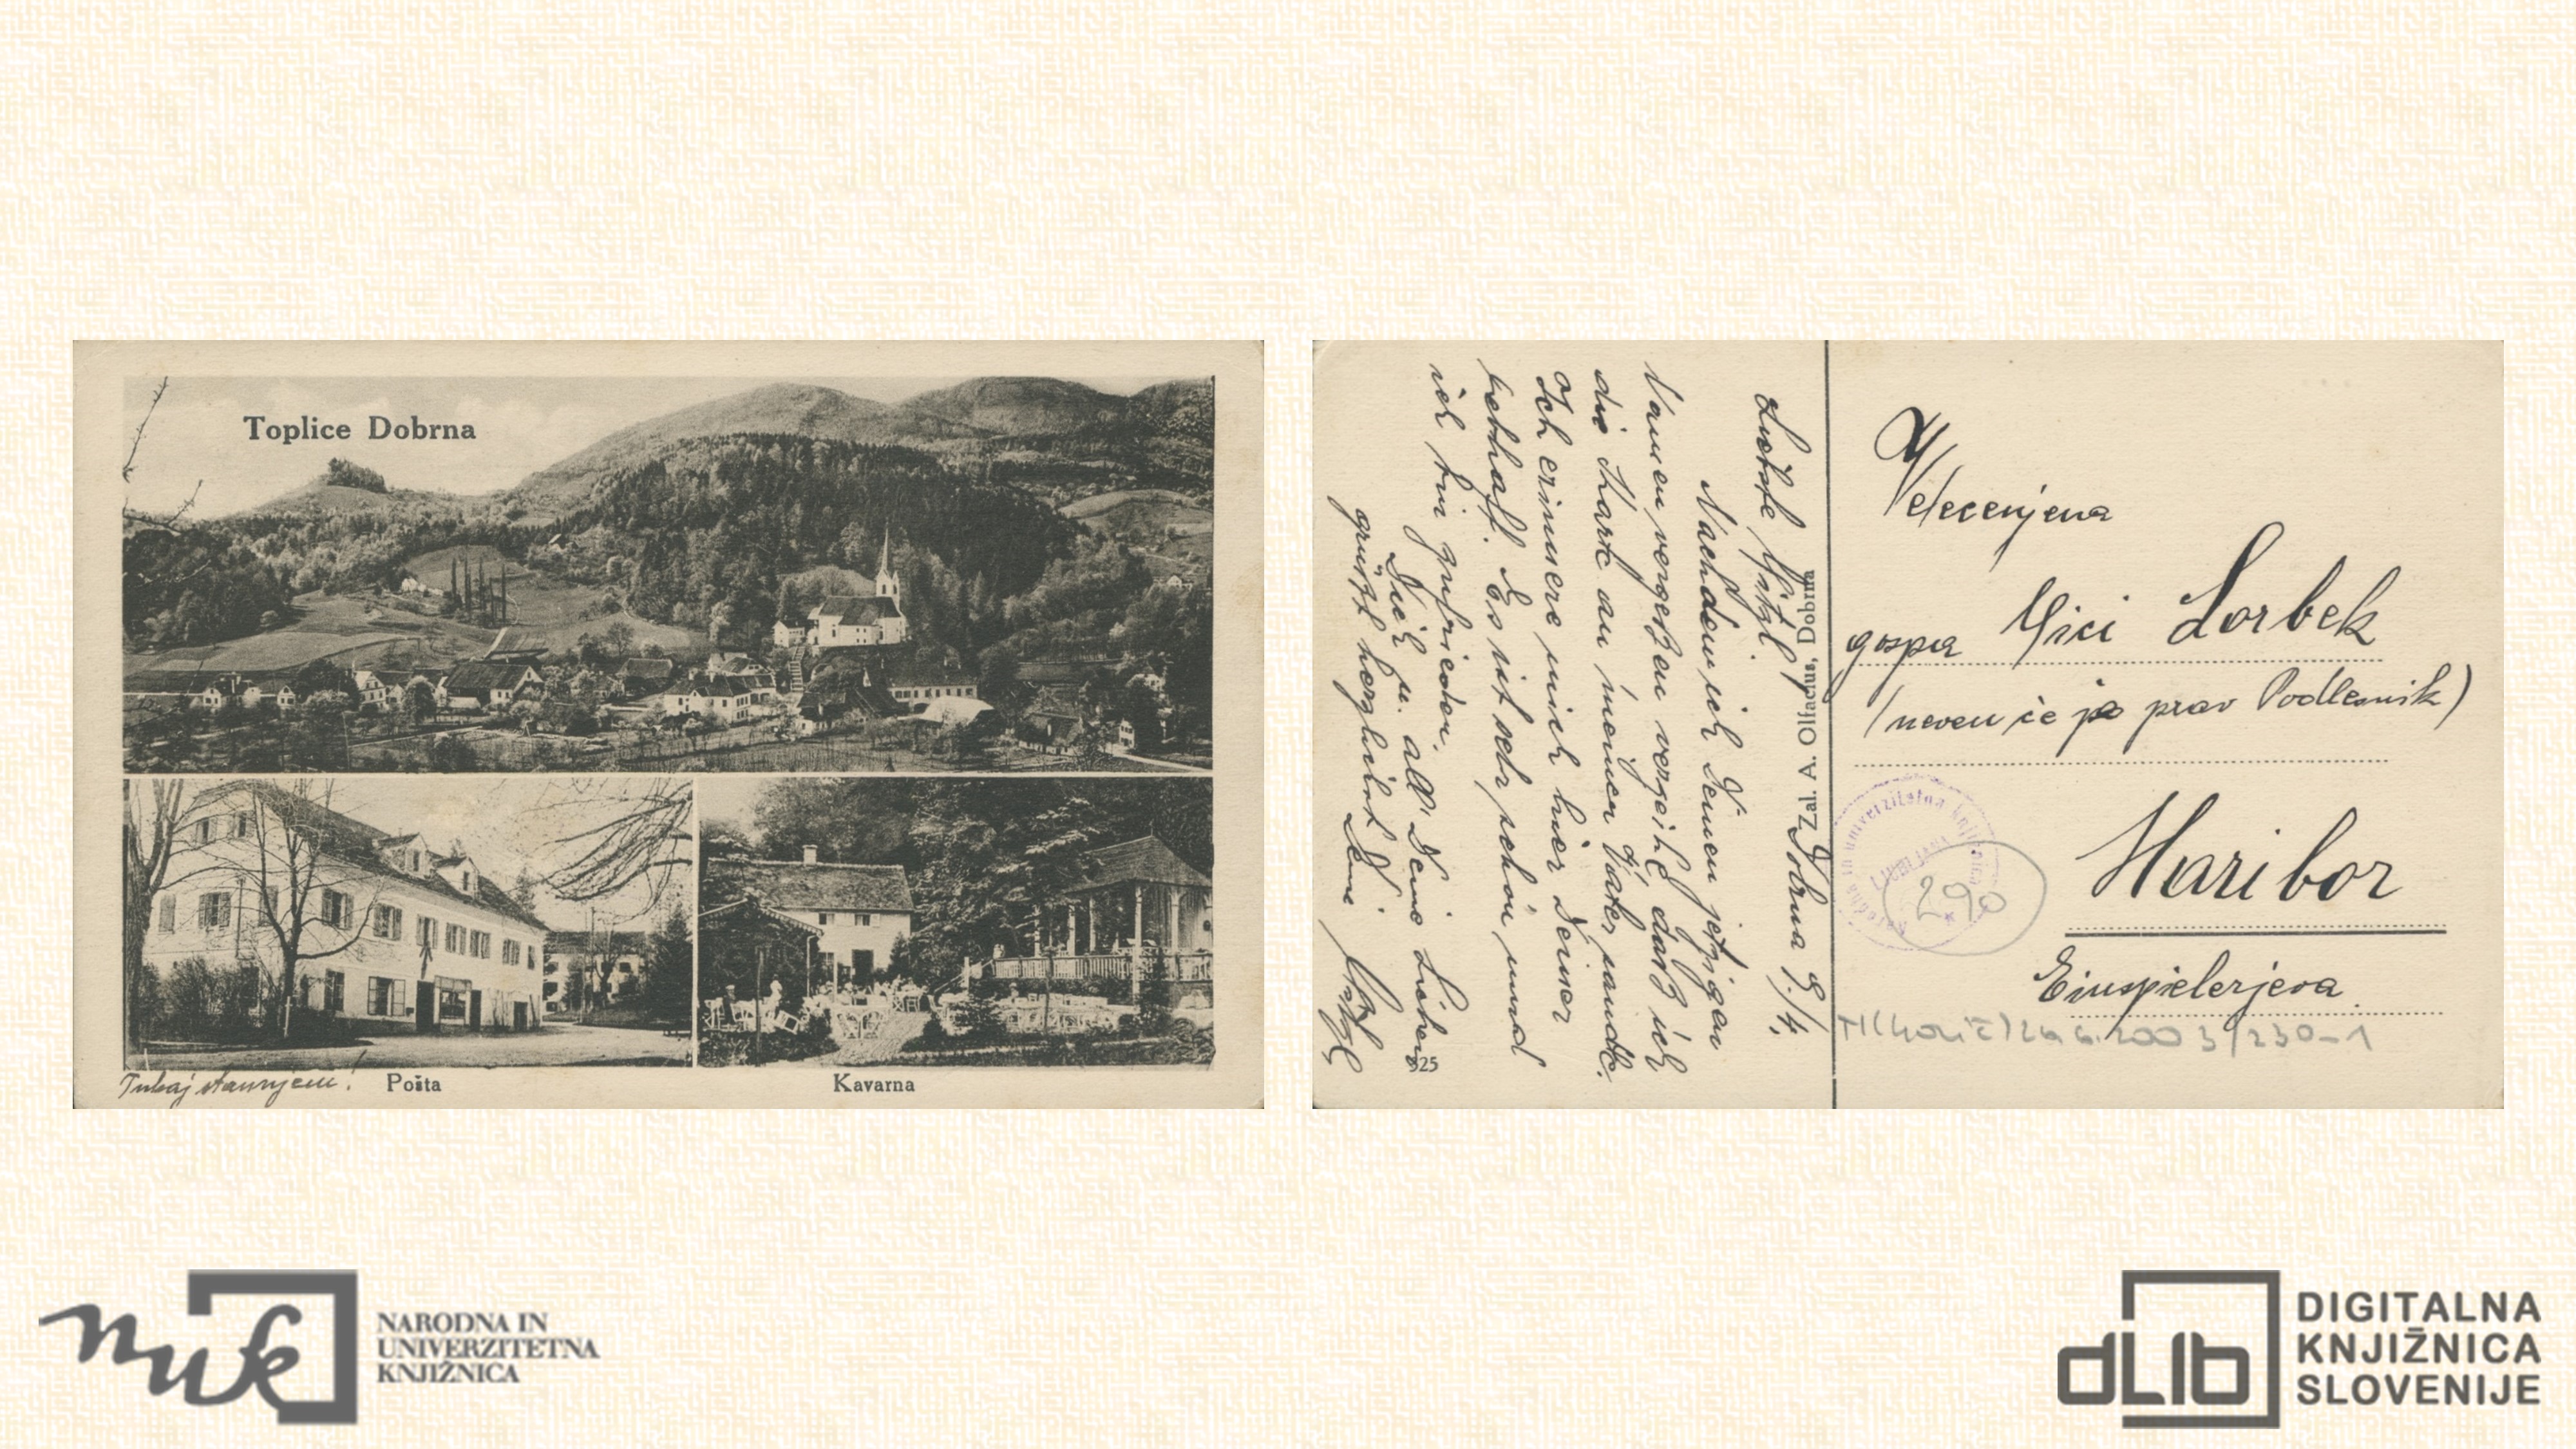 Toplice Dobrna
Tukaj stanujem!
Pošta
Kavarna
Dobrna 9./4.
Liebste Mitzl!
Nachdem ich Deinen jetzigen
Namen vergeßen verzeih, daß ich
die Karte an meiner Vater sandte.
Ich erinnere mich hier Deiner
lebhaft. Es ist sehr schön und
ich bin zufrieden.
Dich u. all' Deine Lieben
grüßt herzlichst Deine
Zal. A. Olfacius, Dobrna
325
Velecenjena
gospa Mici Lorbek
(nevem če je prav Podlesnik)
Maribor
Einspielerjeva
Narodna in univerzitetna knjižnica
LJUBLJANA
290
26.6.2003/230-1
nuk
NARODNA IN
UNIVERZITETNA
KNJIŽNICA
dLib
DIGITALNA
KNJIŽNICA
SLOVENIJE